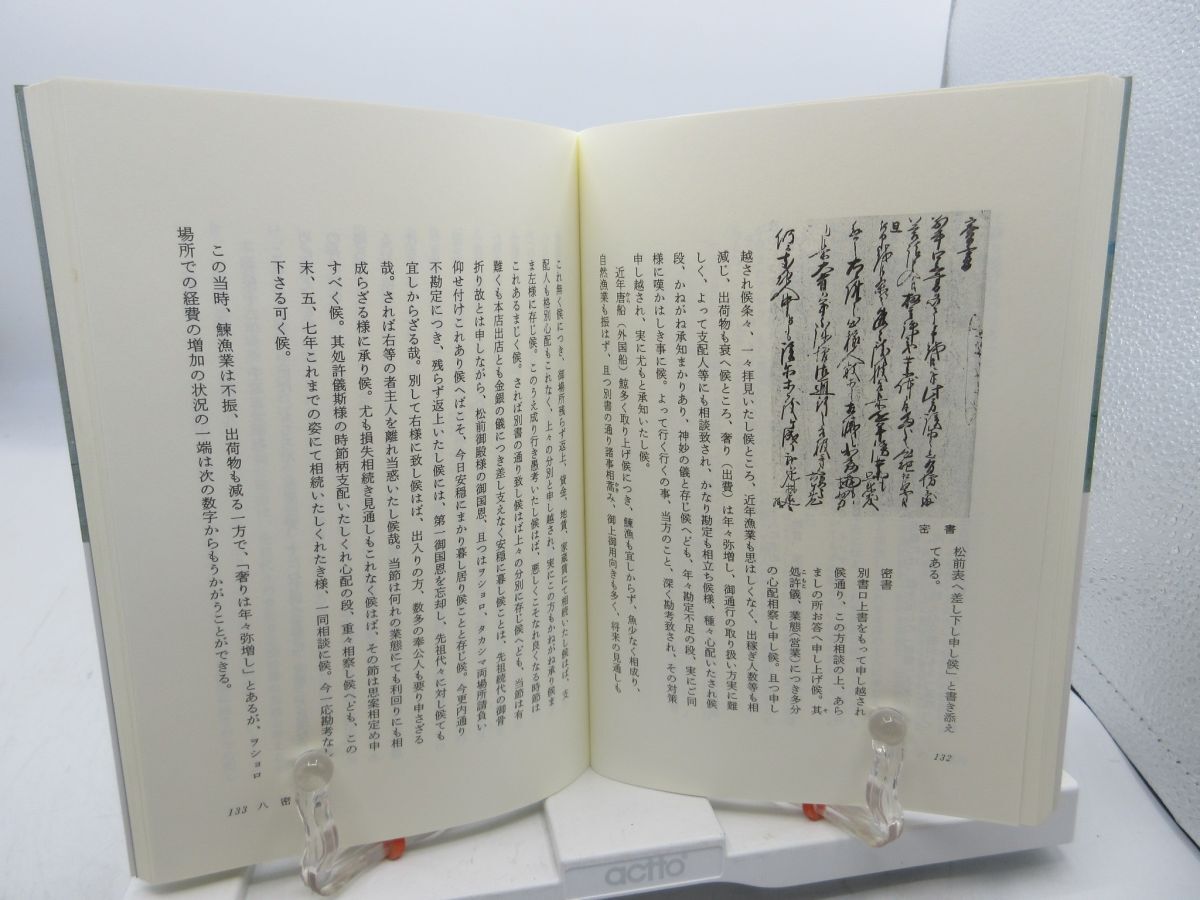 密書
松前表へ差し下し申し候」と書き添え
てある。
密書
別書口上書をもって申し越され
候通り、この方相談の上、あら
ましの所お答へ申し上げ候。其
処許儀、業態(営業)につき多分
の心配相察し申し候。且つ申し
越され候条々、一々拝見いたし候ところ、近年漁業も思はしくなく、出稼ぎ人数等も相
減じ、出荷物も衰へ候ところ、奢り(出費)は年々弥増し、御通行の取り扱い方実に難
しく、よって支配人等にも相談致され、かなり勘定も相立ち候様、種々心配いたされ候
段、かねがね承知まかりあり、神妙の儀と存じ候へども、年々勘定不足の段、実にご同
様に嘆かはしき事に候。よって行く行くの事、当方のこと、深く勘考致され、その対策
申し越され、実に尤もと承知いたし候。
近年唐船(外国船)鯨多く取り上げ候につき、鰊漁も宜しからず、魚少なく相成り、
自然漁業も振はず、且つ別書の通り諸事相嵩み、御上御用向きも多く、将来の見通しも
132
これ無く候につき、御場所残らず返上、貸金、地貸、家蔵貸にて相続いたし候はば、支
配人も格別心配もこれなく、上々の分別と申し越され、実にこの方もかねがね承り候ま
ま左様に存じ候。このうえ成り行き愚考いたし候はば、悪しくこそなれ良くなる時節は
これあるまじく候。されば別書の通り致し候はば上々の分別に存じ候へども、当節は有
難くも本店出店とも金銀の儀につき差し支えなく安穏に暮し候ことは、先祖統代の御骨
折り故とは申しながら、松前御殿様の御国恩、且つはヲショロ、タカシマ両場所請負い
仰せ付けこれあり候へばこそ、今日安穏にまかり暮し居り候ことと存じ候。今更内通り
不勘定につき、残らず返上いたし候には、第一御国恩を忘却し、先祖代々に対し候ても
宜しからざる哉。別して右様に致し候はば、出入りの方、数多の奉公人も要り申さざる
哉。されば右等の者主人を離れ当惑いたし候哉。当節は何れの業態にても利回りにも相
成らざる様に承り候。尤も損失相続き見通しもこれなく候はば、その節は思案相定め申
すべく候。其処許儀斯様の時節柄支配いたしくれ心配の段、重々相察し候へども、この
末、五、七年これまでの姿にて相続いたしくれたき様、一同相談に候。今一応勘考なし
下さる可く候。
この当時、鰊漁業は不振、出荷物も減る一方で、「奢りは年々弥増し」とあるが、ヲショロ
場所での経費の増加の状況の一端は次の数字からもうかがうことができる。
133 八 密
actto